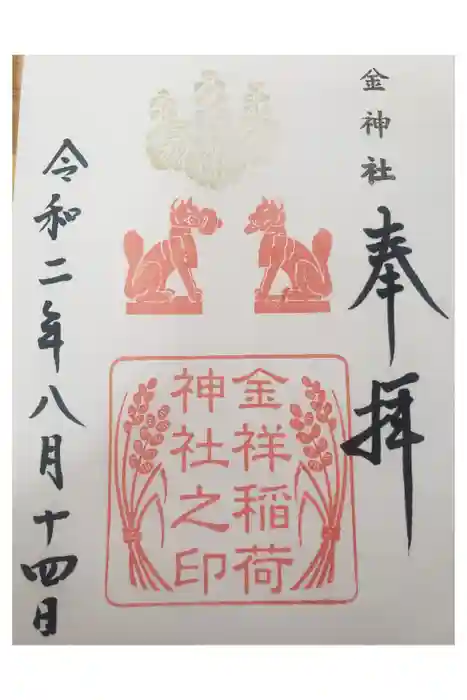 金神社
奉拝
金祥稲荷
神社之印
令和二年八月十四日